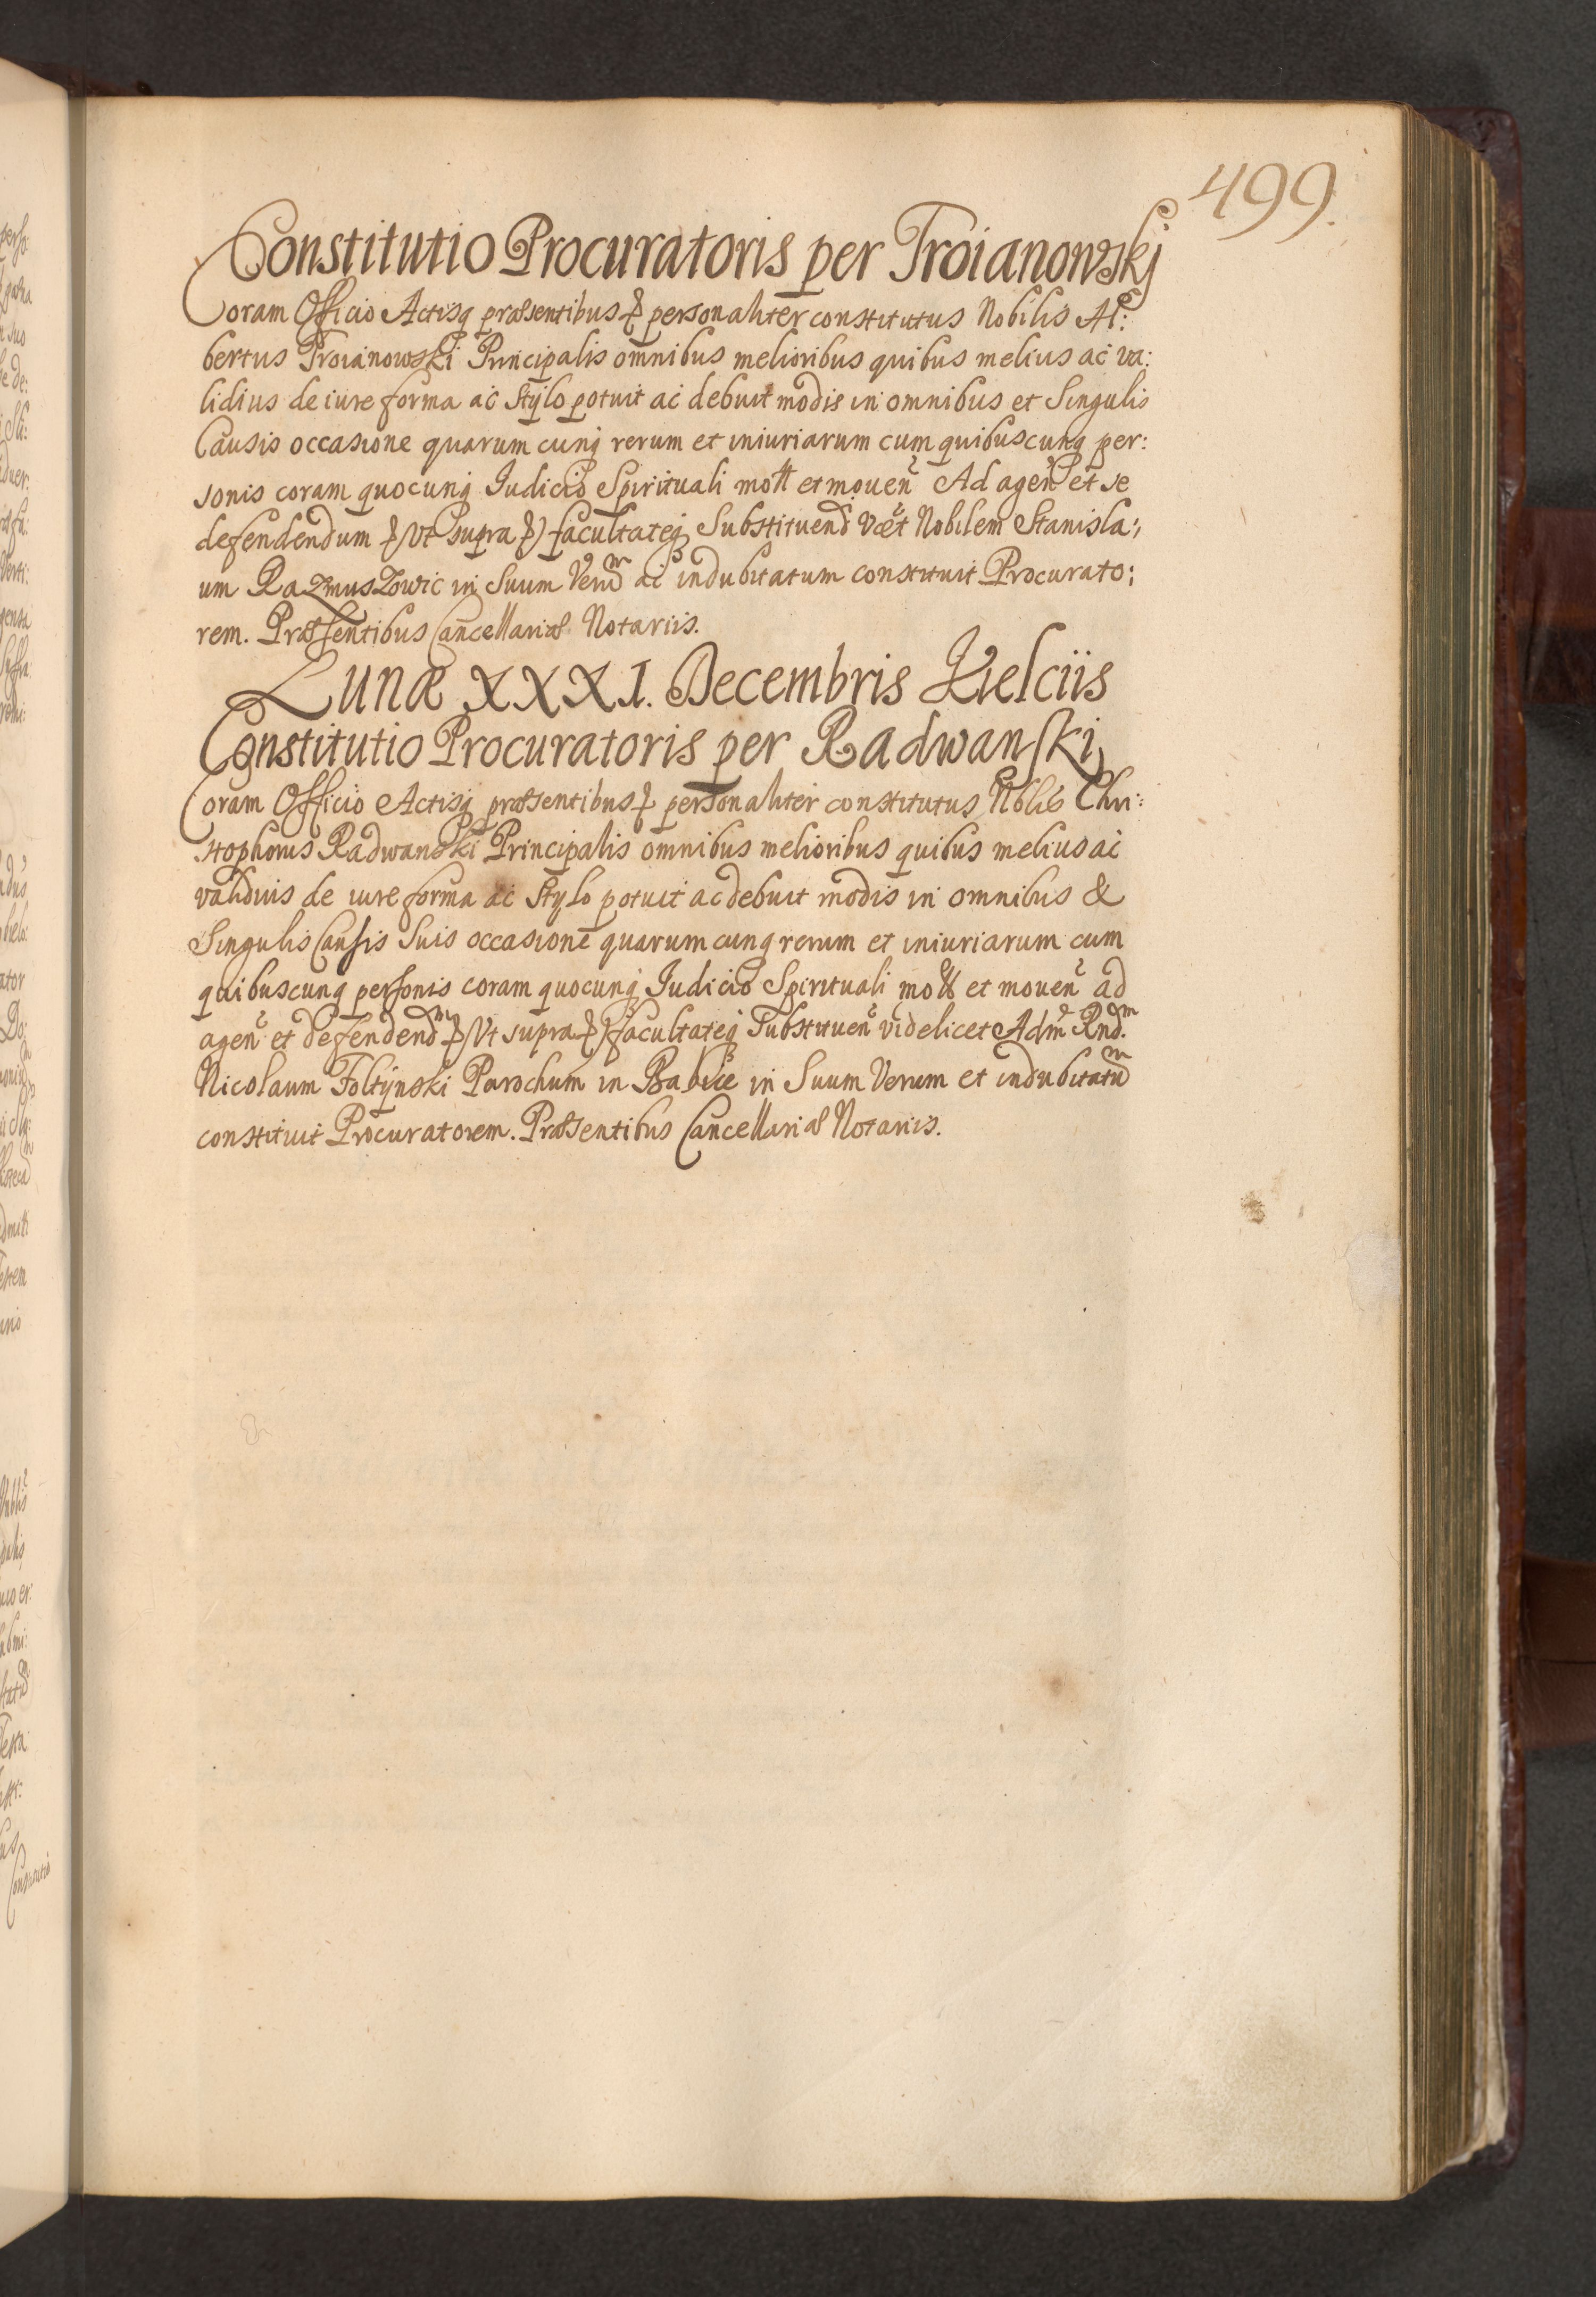 499.
Constitutio Procuratoris per Troianowskj
Coram Officio Actisq præsentibus & personaliter constitutus Nobilis Al:
bertus Troianowski Principalis omnibus melioribus quibus melius ac va:
lidius de iure forma ac Stylo potuit ac debuit modis in omnibus et Singulis
Causis occasione quarum cunq rerum et iniuriarum cum quibuscunq per:
sonis coram quocunq Iudicio Spirituali mott et mouen Ad agen et se
defendendum & (Vt supra &) facultateq Substituend Vcet Nobilem Stanisla:
um RaZmusZowic in Suum Verum ac indubitatum constituit Procurato:
rem. Præsentibus Cancellariæ Notariis.
Lunæ XXXI. Decembris Kielciis
Constitutio Procuratoris per Radwanski
Coram Officio Actisq præsentibus & personaliter constitutus Noblis Chri:
stophorus Radwanski Principalis omnibus melioribus quibus melius ac
validius de iure forma ac Stylo potuit ac debuit modis in omnibus &
Singulis Causis Suis occasione quarumcunq rerum et iniuriarum cum
quibuscunq personis coram quocunq Iudicio Spirituali mott et mouen ad
agen et defendend & (Vt supra &) facultateq Substituen videlicet Adm Rnd.m
Nicolaum Foltynski Parochum in Babice in Suum Verum et indubitatum
constituit Procuratorem. Præsentibus Cancellariæ Notariis.